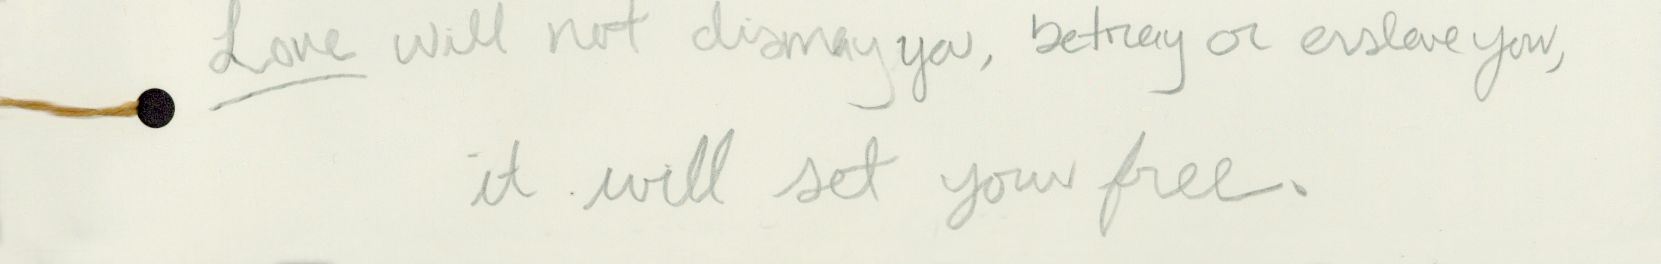 Love will not dismay you, betray or enslave you,
it will set your free.